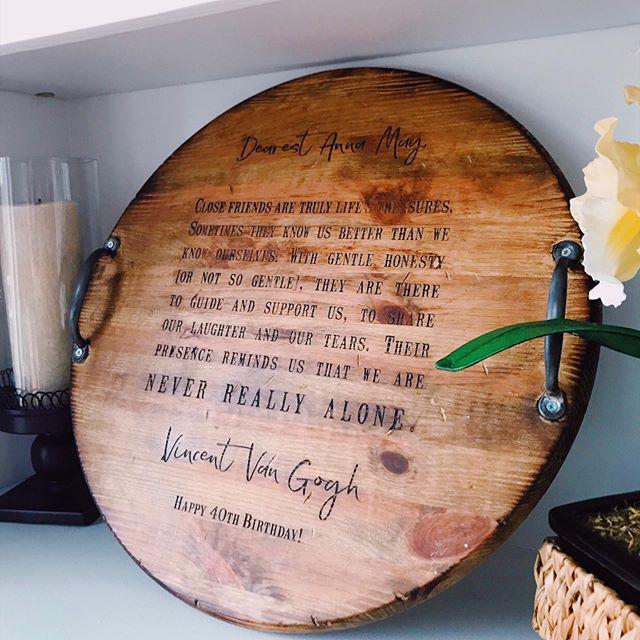 Dearest Anna May,
CLOSE FRIENDS ARE TRULY LIFE'S TREASURES.
SOMETIMES THEY KNOW US BETTER THAN WE
KNOW OURSELVES. WITH GENTLE HONESTY
[OR NOT SO GENTLE], THEY ARE THERE
TO GUIDE AND SUPPORT US, TO SHARE
OUR LAUGHTER AND OUR TEARS. THEIR
PRESENCE REMINDS US THAT WE ARE
NEVER REALLY ALONE.
Vincent Van Gogh
HAPPY 40TH BIRTHDAY!